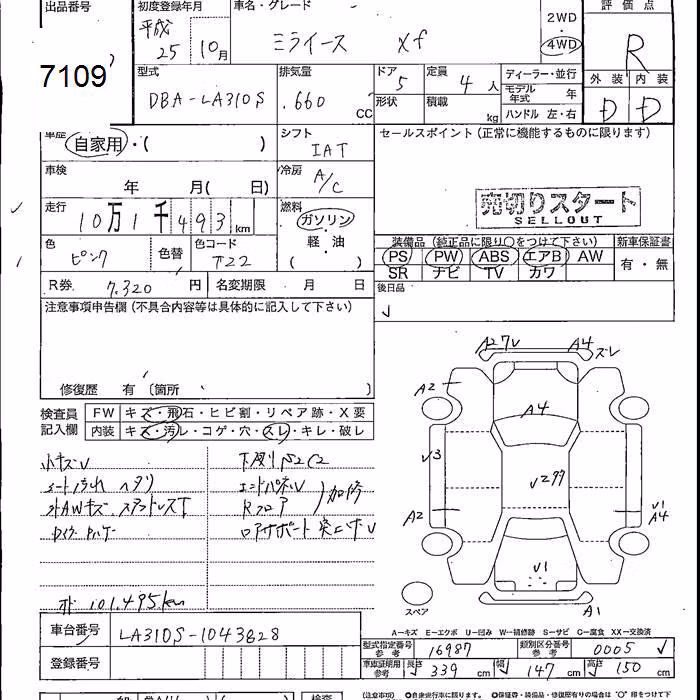 出品番号
7109
初度登録年月
平成
25 10月
車名・グレード
ミライース Xf
2WD
4WD
評価点
R
型式
DBA-LA310S
排気量
.660 CC
ドア 5
定員 4人
形状
積載 kg
ディーラー・並行
モデル年式 年
ハンドル 左・右
外装 内装
D D
車歴
自家用・( )
シフト
IAT
セールスポイント (正常に機能するものに限ります)
車検
年 月( 日)
冷房
A/C
売切りスタート
SELLOUT
走行
10万1千493km
燃料
ガソリン
軽・油
( )
色
ピンク
色替
色コード
T22
装備品 (純正品に限り○をつけて下さい)
新車保証書
PS PW ABS エアB AW
SR ナビ TV カワ
有・無
R券 7,320円
名変期限 月 日
後日品
注意事項申告欄 (不具合内容等は具体的に記入して下さい)
修復歴 有 (箇所 )
検査員
記入欄
FW キズ・飛石・ヒビ割・リペア跡・X要
内装 キズ・汚レ・コゲ・穴・スレ・キレ・破レ
小キズU
エンドパネU
Rフロア
加修
ロアサポート 突上ゲU
オド 101,495km
A27U A4 ズレ
A2 A4
U3 U277
A2 U1 A4
U1
A1
スペア
A−キズ E−エクボ U−凹み W−補修跡 S−サビ C−腐食 XX−交換済
車台番号 LA310S-1043828
登録番号
型式指定番号 参考 16987
類別区分番号 参考 0005
車庫証明用 参考
長さ 339 cm 幅 147 cm 高さ 150 cm